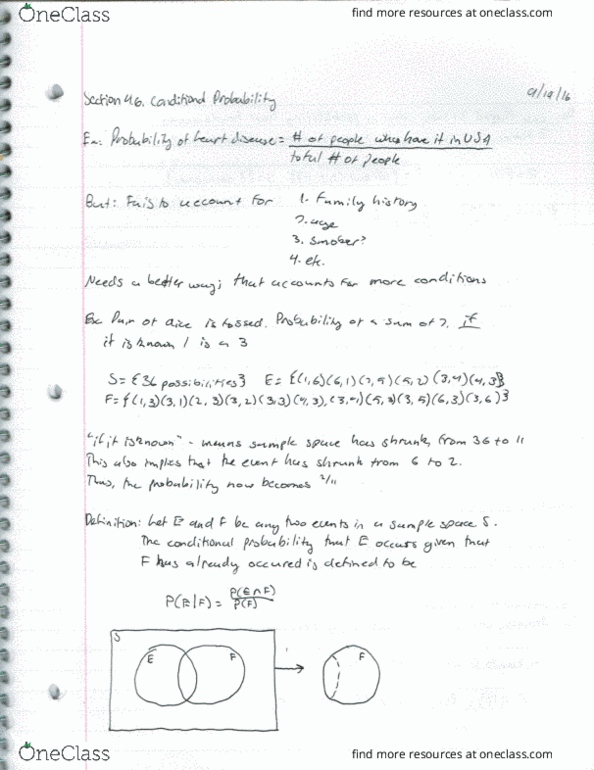 OneClass
find more resources at oneclass.com
9/19/16
Section 4.6. Conditional Probability
Ex: Probability of heart disease = # of people who have it in USA
total # of people
But: Fails to account for 1. Family history
2. age
3. Smoker?
4. etc.
Needs a better way; that accounts for more conditions
Ex: Pair of dice is tossed. Probability of a sum of 7. if
it is known 1 is a 3
S = {36 possibilities} E = {(1,6)(6,1)(2,5)(5,2)(3,4)(4,3)}
F = {(1,3)(3,1)(2,3)(3,2)(3,3)(4,3),(3,4)(5,3)(3,5)(6,3)(3,6)}
"if it is known" - means sample space has shrunk, from 36 to 11
This also implies that the event has shrunk from 6 to 2.
Thus, the probability now becomes 2/11
Definition: Let E and F be any two events in a sample space S.
The conditional probability that E occurs given that
F has already occured is defined to be
P(E|F) = P(E∩F)
P(F)
S
E F F
OneClass
find more resources at oneclass.com